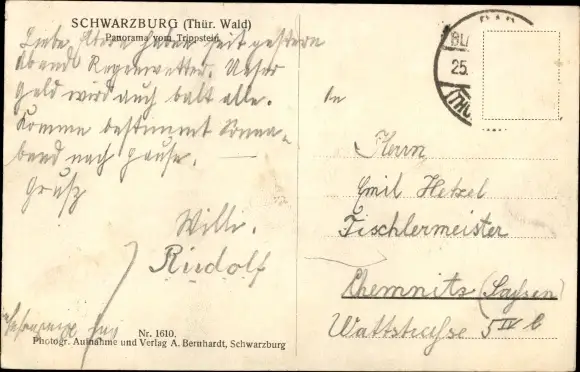 SCHWARZBURG (Thür. Wald)
Panorama vom Trippstein
Liebe Eltern haben seit gestern
Abend Regenwetter. Unser
Geld wird auch balt alle.
Komme bestimmt Sonna-
bend nach Hause.
Grusz
Willi.
Rudolf
Nr. 1610.
Photogr. Aufnahme und Verlag A. Bernhardt, Schwarzburg
BAD
BL
25.
(THÜ
An
Herrn
Emil Hetzel
Tischlermeister
Chemnitz (Sachsen)
Wattstrasse 5 IV b